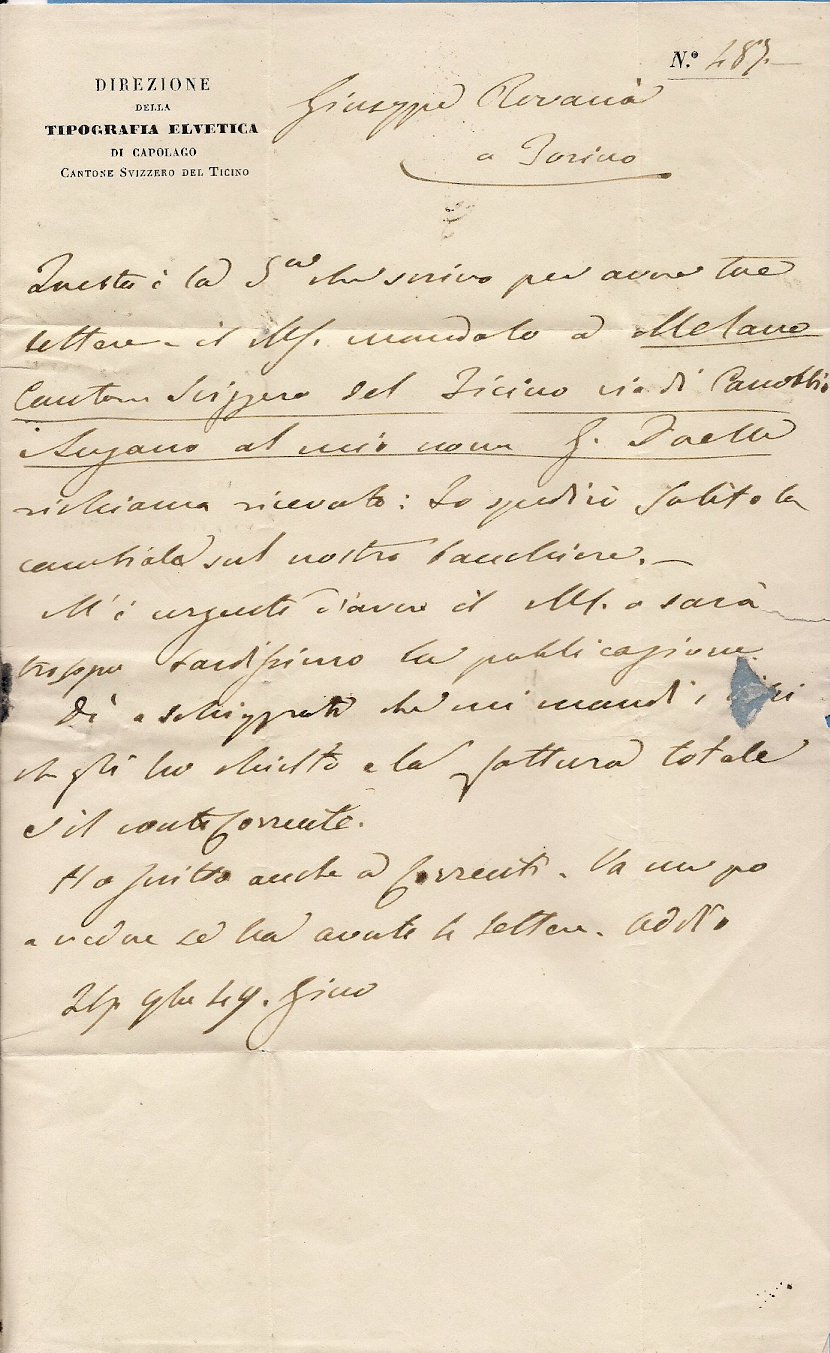 DIREZIONE
DELLA
TIPOGRAFIA ELVETICA
DI CAPOLAGO
CANTONE SVIZZERO DEL TICINO
N.º 487.
Giuseppe Rovani
a Torino
Questa è la 5ª che scrivo per avere tue
lettere - il Ms. mandalo a Melano
Cantone Svizzero del Ticino via di Canobbio
Lugano al mio nome G. Daelli
richiama ricevuta: Io spedirò subito la
cambiale sul nostro banchiere.
M'è urgente d'avere il Ms. o sarà
troppo tardissimo la pubblicazione.
Di a Schiepatti che mi mandi i
che gli ho chiesto e la fattura totale
e il conto corrente.
Ho scritto anche a Correnti. Va un po
a vedere se ha avute le lettere. Addio
9bre 49. Gino